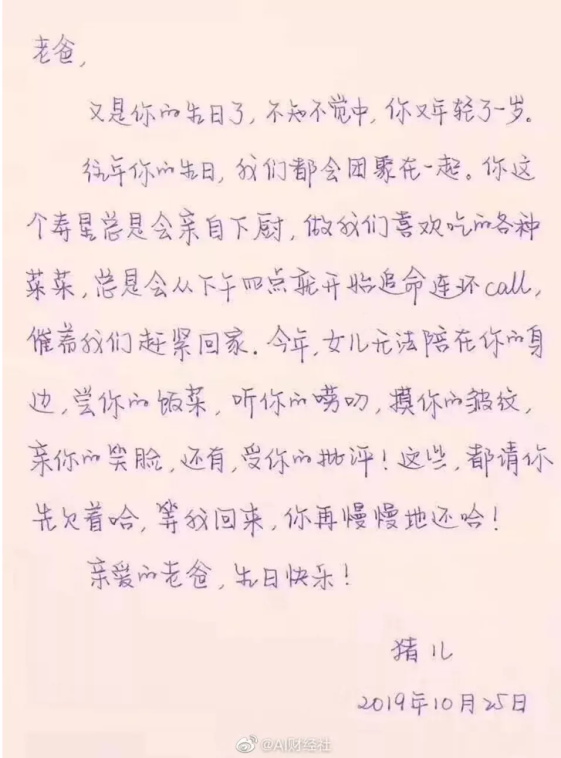 老爸,
又是你的生日了,不知不觉中,你又年轻了一岁。
往年你的生日,我们都会团聚在一起。你这
个寿星总是会亲自下厨,做我们喜欢吃的各种
菜菜,总是会从下午四点就开始追命连环call,
催着我们赶紧回家.今年,女儿无法陪在你的身
边,尝你的饭菜,听你的唠叨,摸你的皱纹,
亲你的笑脸,还有,受你的批评!这些,都请你
先欠着哈,等我回来,你再慢慢地还哈!
亲爱的老爸,生日快乐!
猪儿
2019年10月25日
@AI财经社